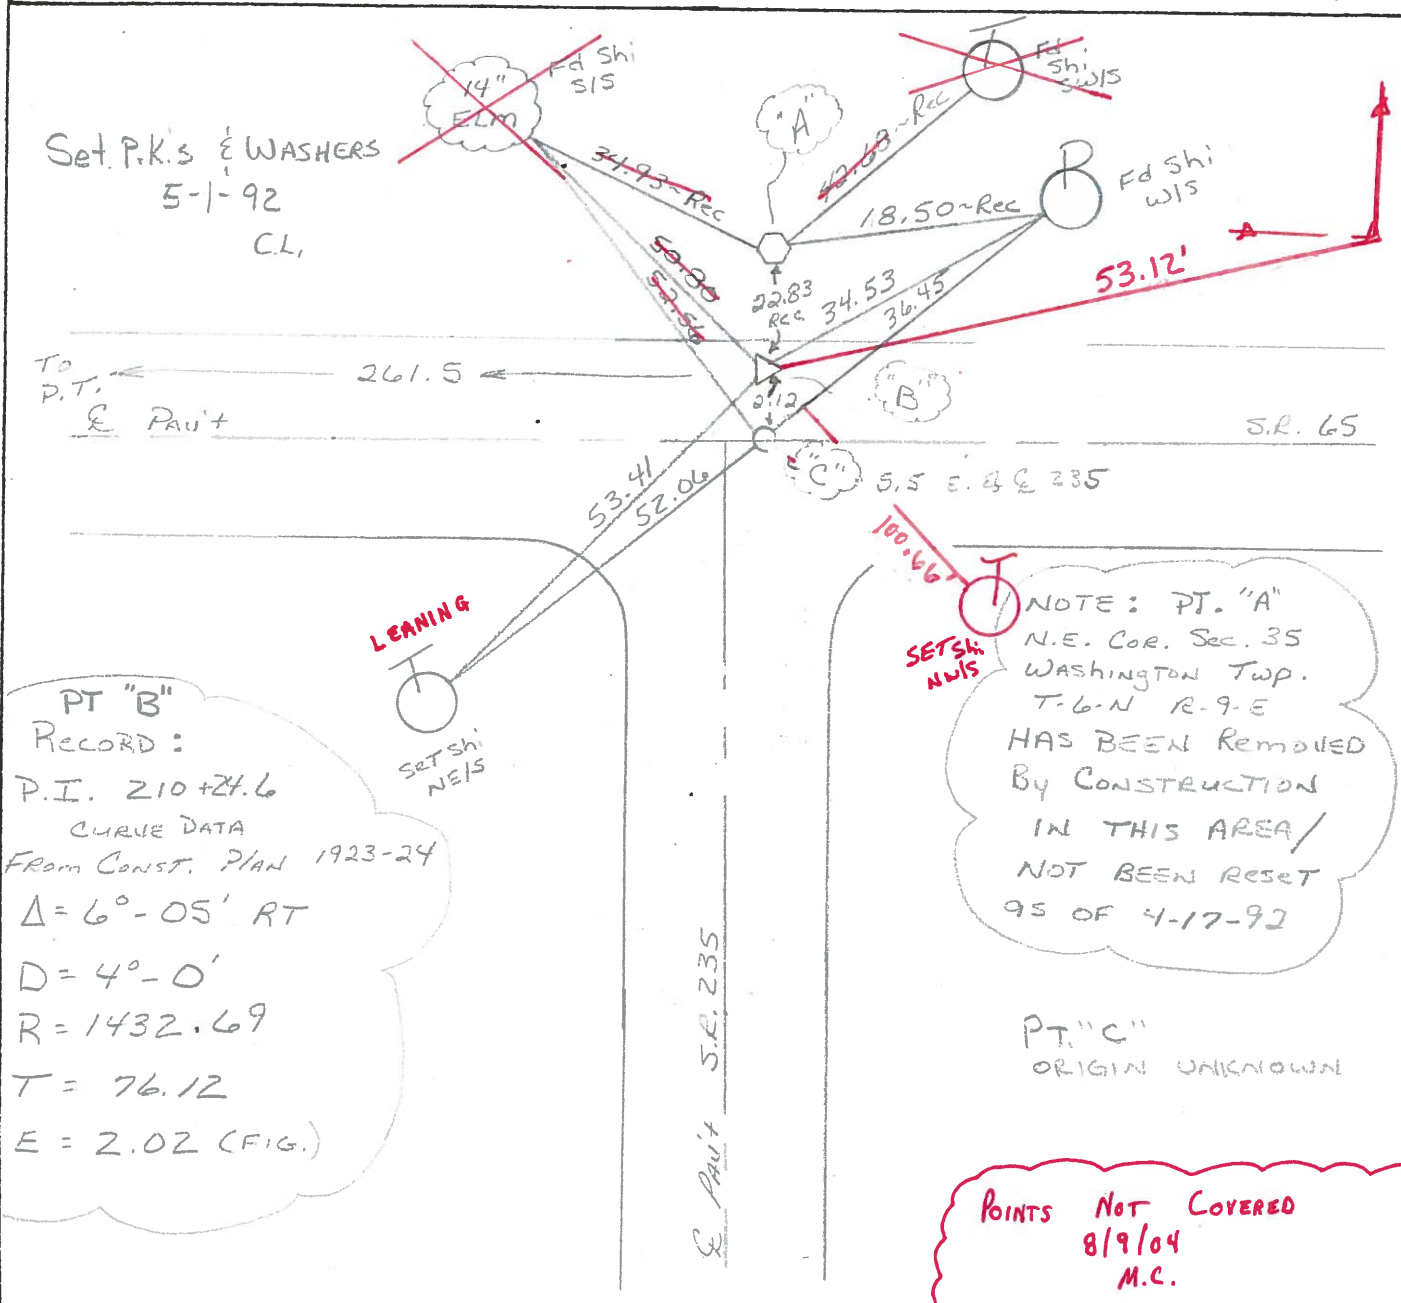 14"
ELM
Fd Shi
S/S
Fd
Shi
SW/S
"A"
Set P.K.s & WASHERS
5-1-92
C.L.
34.93~Rec
42.63~Rec
Fd Shi
W/S
18.50~Rec
50.80
52.56
22.83
REC
34.53
36.45
53.12'
TO
P.T.
261.5
2.12
"B"
℄ PAV't
S.R. 65
"C"
5.5 E. OF ℄ 235
53.41
52.06
100.66'
LEANING
SET Shi
NE/S
SET Shi
NW/S
NOTE: PT. "A"
N.E. COR. Sec. 35
WASHINGTON TWP.
T-6-N R-9-E
HAS BEEN REMOVED
By CONSTRUCTION
IN THIS AREA/
NOT BEEN RESET
as OF 4-17-92
PT "B"
RECORD:
P.I. 210+24.6
CURVE DATA
FROM CONST. PLAN 1923-24
Δ= 6°-05' RT
D= 4°-0'
R=1432.69
T= 76.12
E = 2.02 (FIG.)
℄ PAV't S.R. 235
PT. "C"
ORIGIN UNKNOWN
POINTS NOT COVERED
8/9/04
M.C.